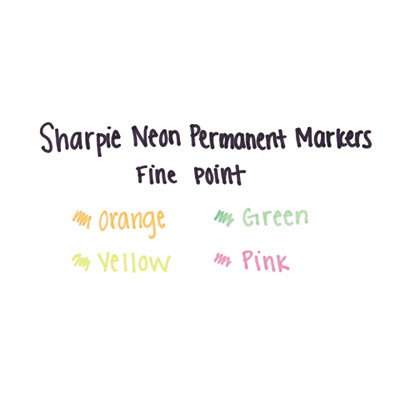 Sharpie Neon Permanent Markers
Fine Point
Orange Green
Yellow Pink